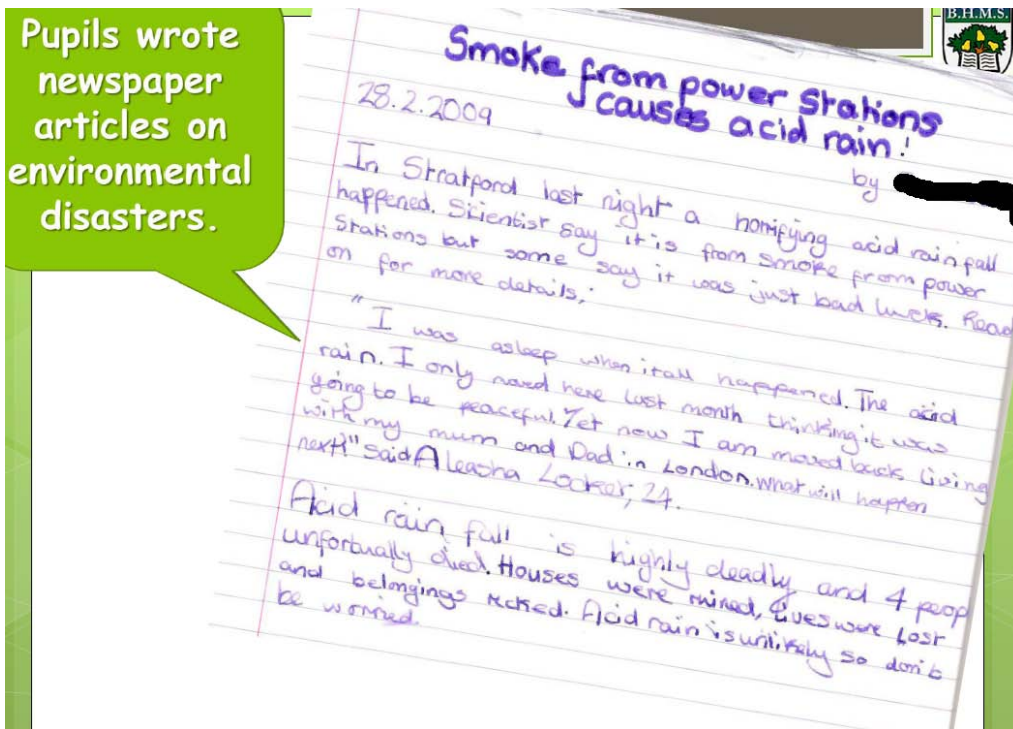 Pupils wrote
newspaper
articles on
environmental
disasters.
B.H.M.S.
Smoke from power Stations
causes acid rain!
28.2.2009
by
In Stratford last night a horrifying acid rain fall
happened. Scientist say it is from smoke from power
stations but some say it was just bad luck. Read
on for more details;
"I was asleep when it all happened. The acid
rain. I only moved here last month thinking it was
going to be peaceful. Yet now I am moved back living
with my mum and Dad in London. What will happen
next!" said Aleasha Locker, 24.
Acid rain fall is highly deadly and 4 peop
unfortually died. Houses were ruined, lives were lost
and belongings recked. Acid rain is unlikely so don't
be worried.